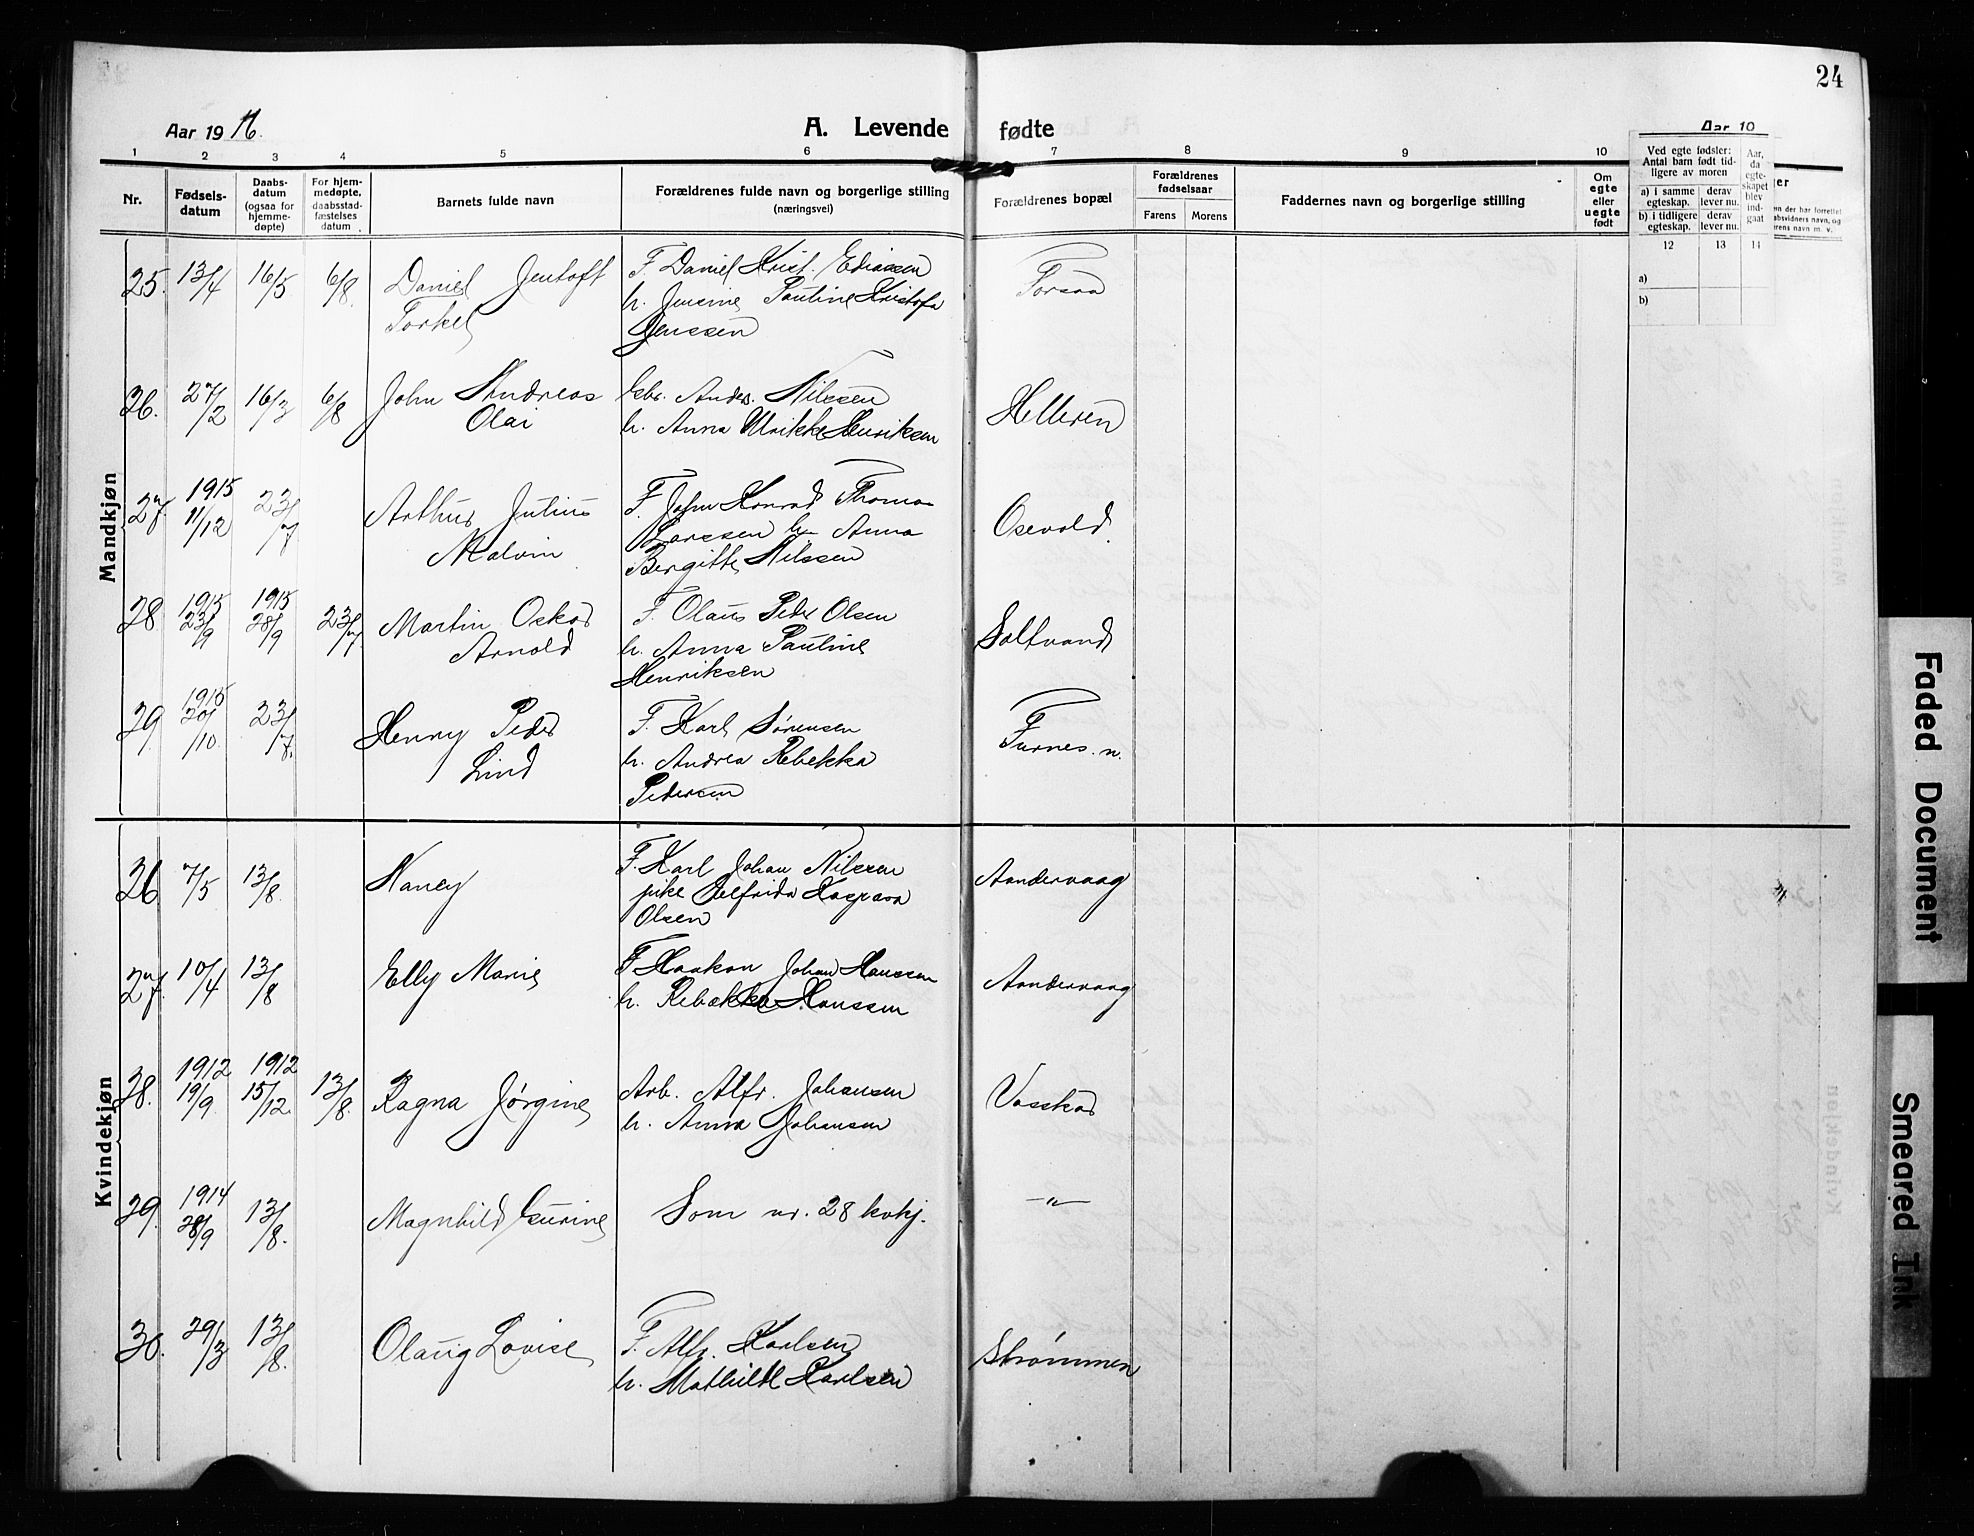 24
Aar 1916.
A. Levende fødte
Aar 19
1 2 3 4 5 6 7 8 9 10
Nr.
Fødsels-
datum
Daabs-
datum
(ogsaa for
hjemme-
døpte)
For hjem-
medøpte,
daabsstad-
fæstelses
datum
Barnets fulde navn
Forældrenes fulde navn og borgerlige stilling
(næringsvei)
Forældrenes bopæl
Forældrenes
fødselsaar
Farens Morens
Faddernes navn og borgerlige stilling
Om
egte
eller
uegte
født
Ved egte fødsler:
Antal barn født tid-
ligere av moren
a) i samme
egteskap.
derav
lever nu.
b) i tidligere
egteskap.
derav
lever nu.
Aar,
da
egte-
skapet
blev
ind-
gaat
12 13 14
a)
b)
Mandkjøn
25. 13/4 16/5 6/8. Daniel Jentoft F. Daniel Krist. Ediassen Forsaa
Torkel h. Jensine Pauline Kristofa
Jenssen
26. 27/2 16/3 6/8 John Andreas Gbr. Anders. Nilssen Helleren
Olai h. Anna Ulrikke Henriksen
27. 1915 11/12 23/7 Arthur Julius F. John Konrad Thomas Osevold.
Malvin Larssen h. Anna
Bergitte Nilssen
28. 1915 23/9 1915 28/9 23/7. Martin Oskar F. Olaus Peder Olsen Saltvand
Arnold h. Anna Pauline
Henriksen
29. 1915 20/10. 23/7. Henry Peder F. Karl Sørensen Furnes. n.
Lind h. Andrea Rebekka
Pedersen
Kvindekjøn
26. 7/5 13/8. Nancy F. Karl Johan Nilssen Aandervaag
pike Delfrida Kaspara
Olsen
27. 10/4 13/8 Elly Marie F Haakon Johan Hanssen Aandervaag
h. Rebækka Hanssen
28. 1912 19/9 1912 15/12. 13/8. Ragna Jørgine Arb. Alfr. Johansen Vasskar
h. Anna Johansen
29. 1914 28/9 13/8. Magnhild Gurine Som nr. 28 kvkj. —"—
30. 29/3 13/8. Olaug Lovise F. Alfr. Karlsen Strømmen
h. Mathilde Karlsen
Faded Document
Smeared Ink